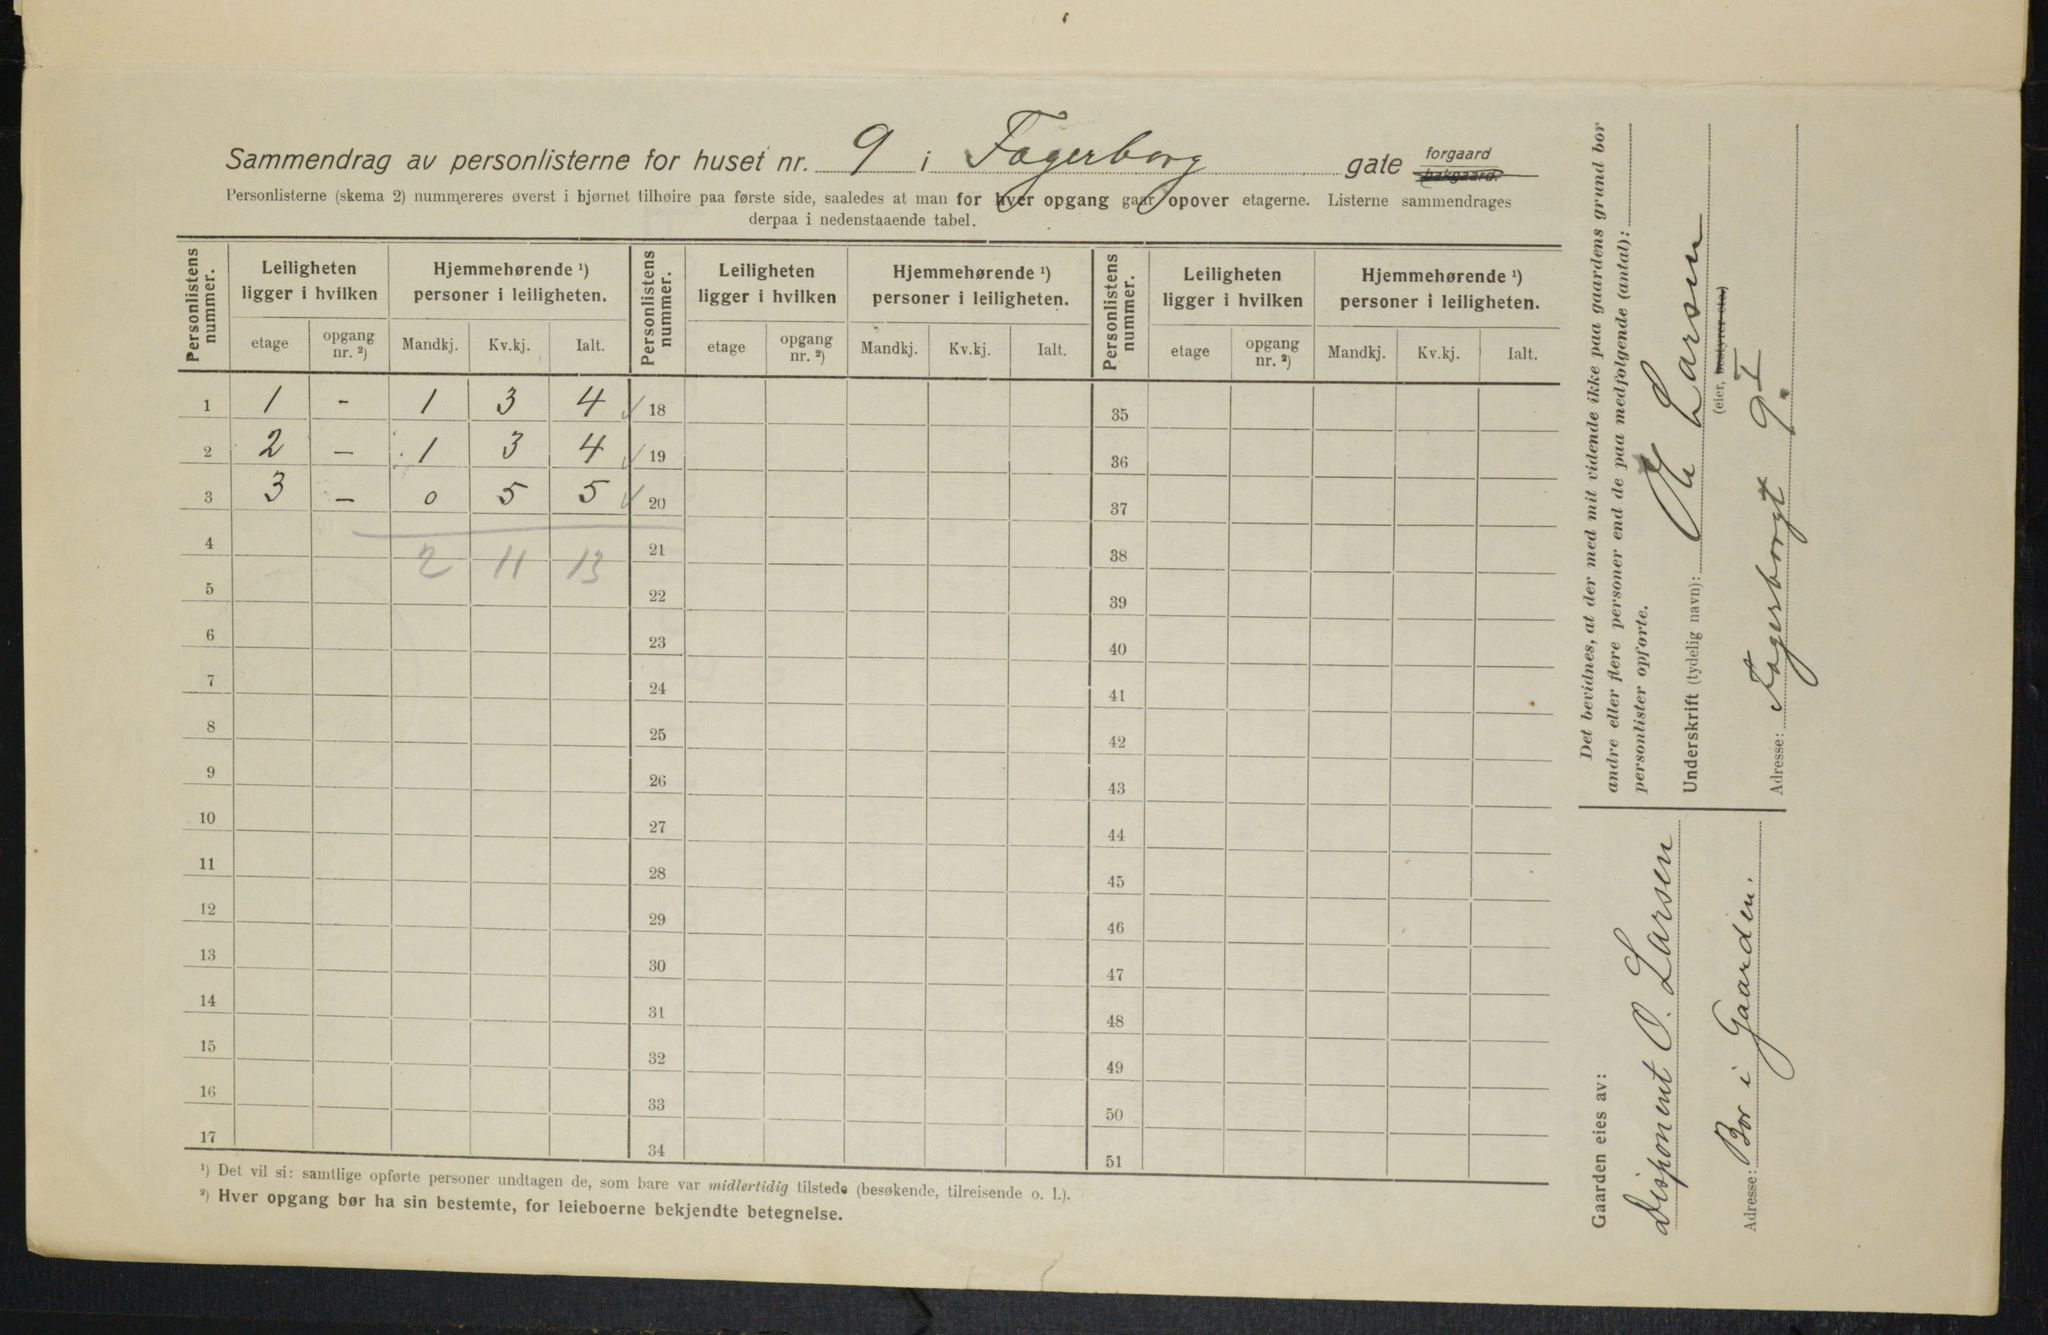 Sammendrag av personlisterne for huset nr. 9 i Fagerborg gate forgaard bakgaard.
Personlisterne (skema 2) nummereres øverst i hjørnet tilhøire paa første side, saaledes at man for hver opgang gaar opover etagerne. Listerne sammendrages
derpaa i nedenstaaende tabel.
Personlistens nummer. Leiligheten ligger i hvilken Hjemmehørende ¹) personer i leiligheten. Personlistens nummer. Leiligheten ligger i hvilken Hjemmehørende ¹) personer i leiligheten. Personlistens nummer. Leiligheten ligger i hvilken Hjemmehørende ¹) personer i leiligheten.
etage opgang nr. ²) Mandkj. Kv.kj. Ialt. etage opgang nr. ²) Mandkj. Kv.kj. Ialt. etage opgang nr. ²) Mandkj. Kv.kj. Ialt.
1 1 - 1 3 4 ✓ 18 35
2 2 - 1 3 4 ✓ 19 36
3 3 - 0 5 5 ✓ 20 37
4 2 11 13 21 38
5 22 39
6 23 40
7 24 41
8 25 42
9 26 43
10 27 44
11 28 45
12 29 46
13 30 47
14 31 48
15 32 49
16 33 50
17 34 51
¹) Det vil si: samtlige opførte personer undtagen de, som bare var midlertidig tilstede (besøkende, tilreisende o. l.).
²) Hver opgang bør ha sin bestemte, for leieboerne bekjendte betegnelse.
Det bevidnes, at der med mit vidende ikke paa gaardens grund bor
andre eller flere personer end de paa medfølgende (antal):
personlister opførte.
Underskrift (tydelig navn): Larsen
(eier, bestyrer etc.)
Adresse: Fagerborggt 9 I
Gaarden eies av:
Disponent O. Larsen
Adresse: Bor i Gaarden.